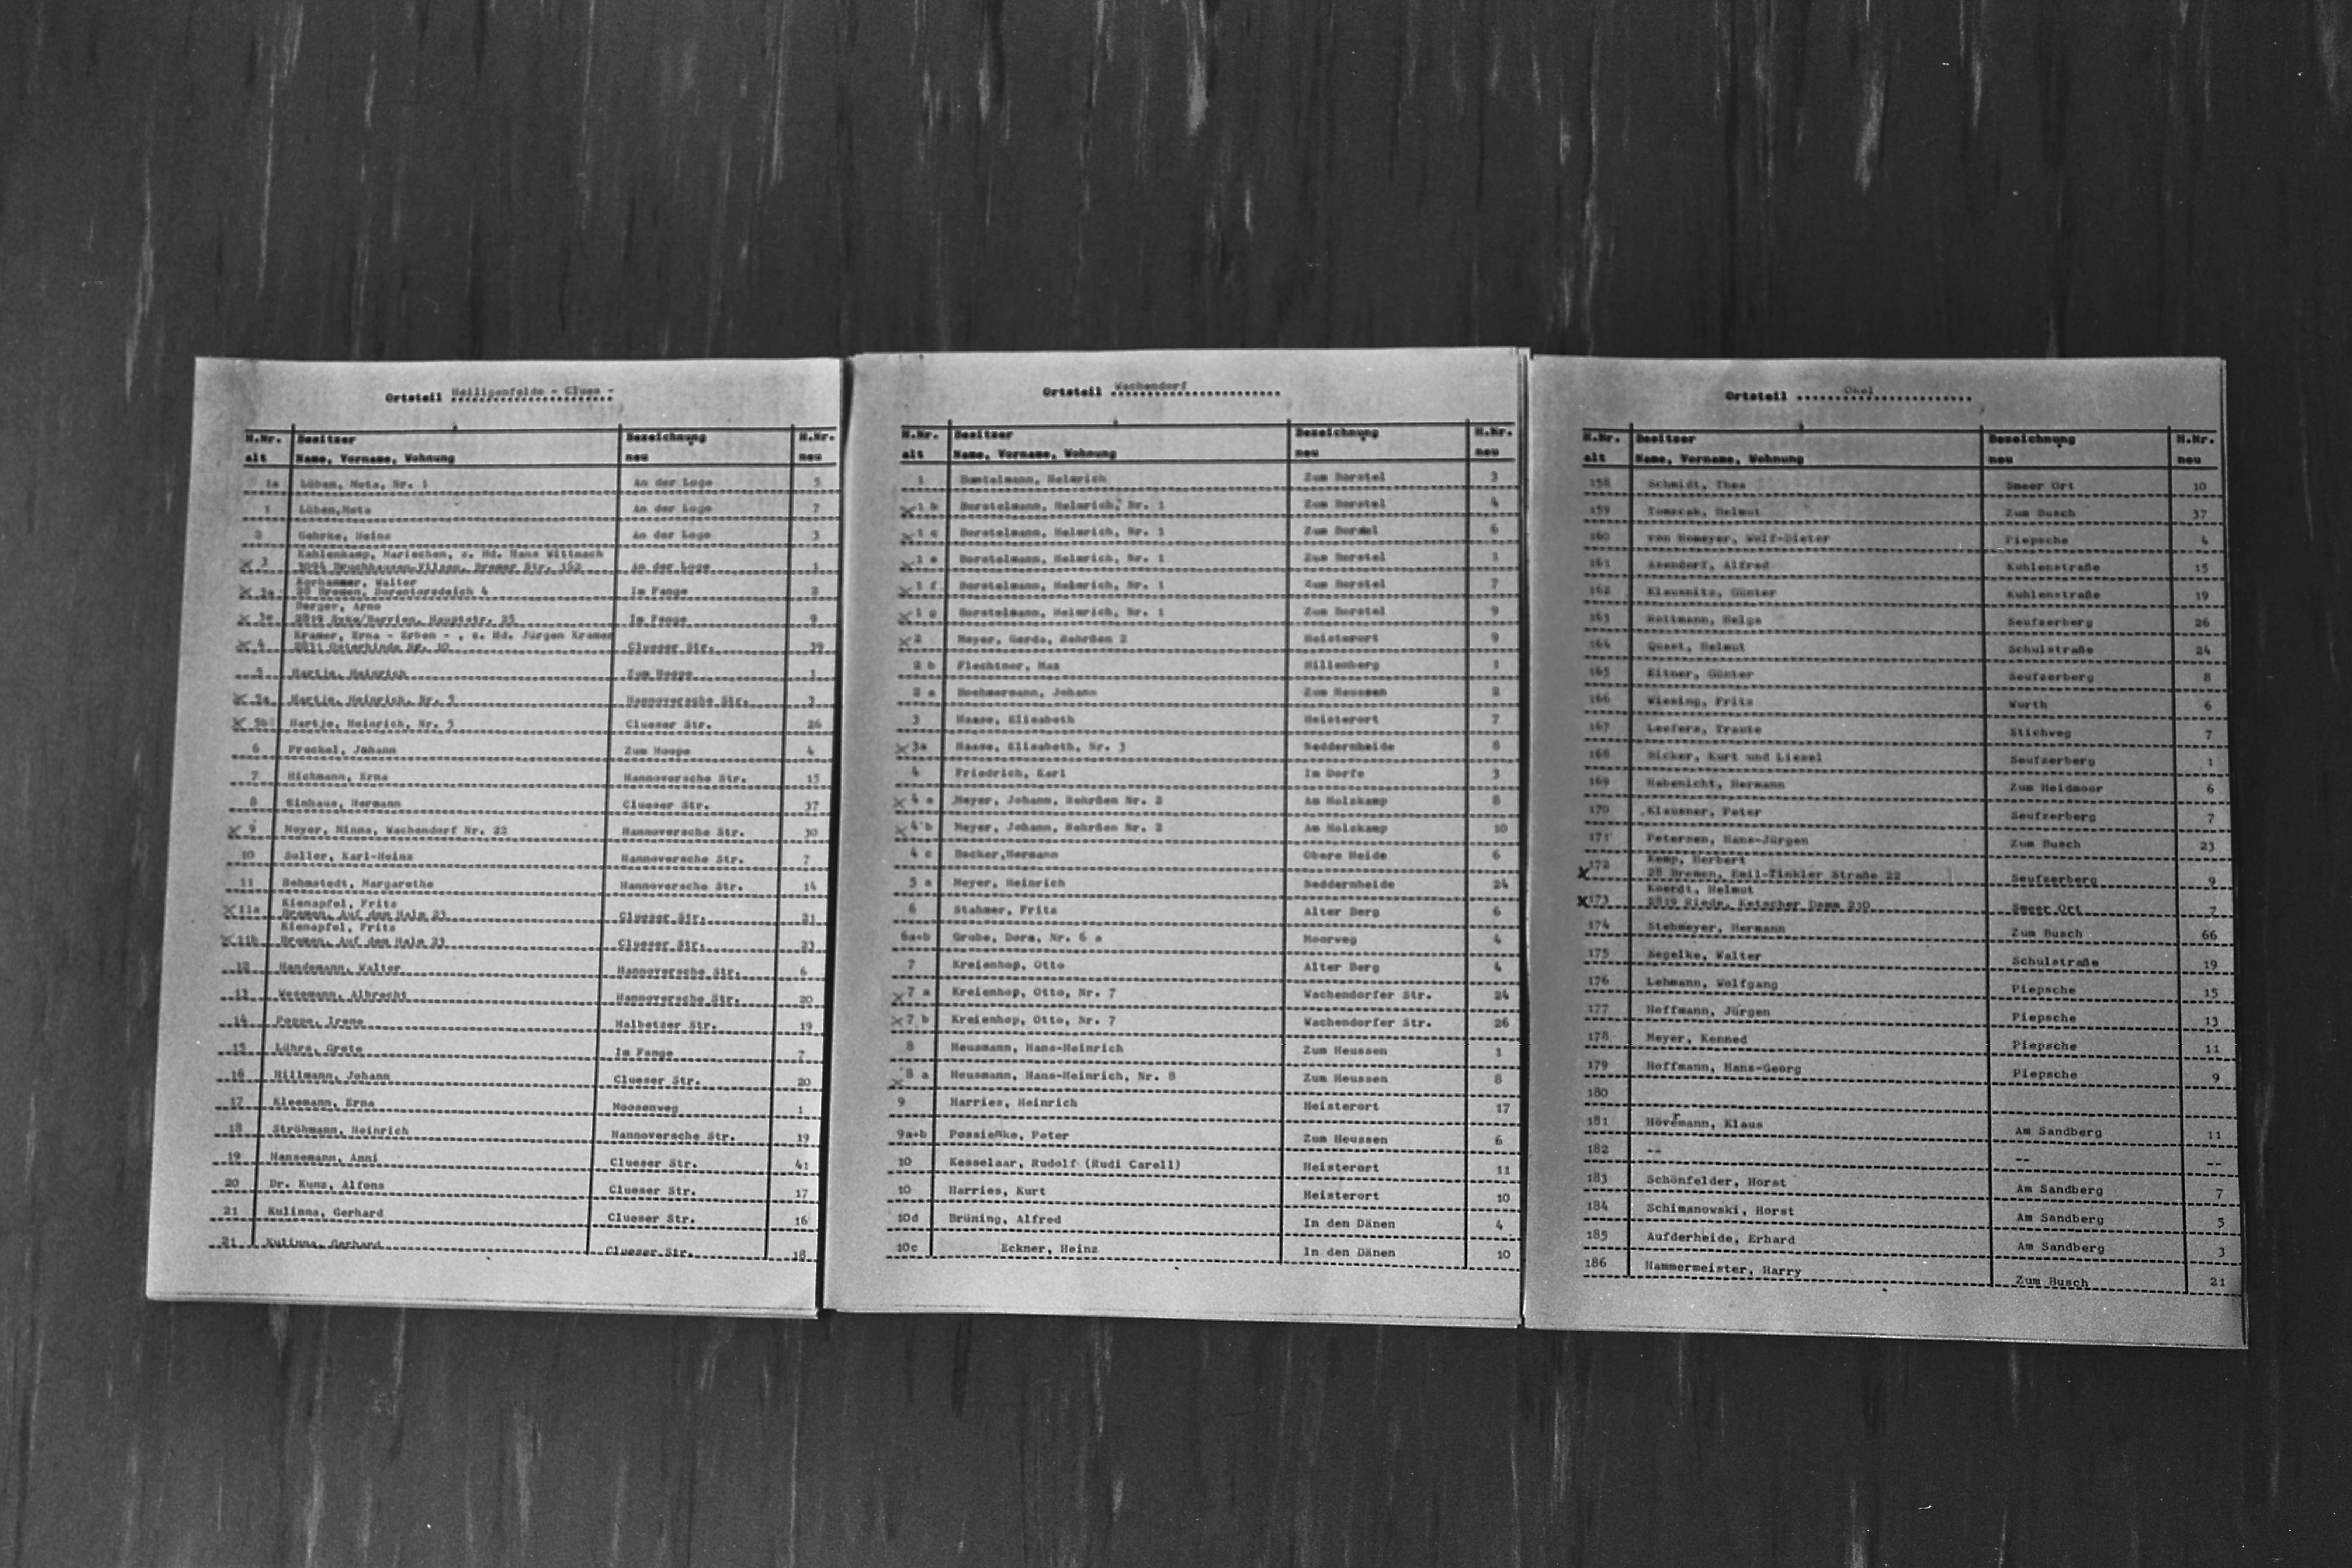 Ortsteil Heiligenfelde - Clues -
H.Nr. Besitzer Bezeichnung H.Nr.
alt Name, Vorname, Wohnung neu neu
1a Lüben, Meta, Nr. 1 An der Loge 5
1 Lüben,Meta An der Loge 7
2 Gehrke, Heinz An der Loge 3
Kahlenkamp, Mariechen, z. Hd. Hans Wittmach
x 3 3094 Bruchhausen-Vilsen, Bremer Str. 152 An der Loge 1
Korhammer, Walter
x 28 Bremen, Dorentorsdeich 4 Im Fange 2
Berger, Arno
x 2819 Syke/Barrien, Hauptstr. 25 Im Fange 9
Kramer, Erna - Erben - , z. Hd. Jürgen Kramer
x 4 2831 Osterbinde Nr. 10 Clueser Str. 39
5 Hartje, Heinrich Zum Hoope 1
x 5a Hartje, Heinrich, Nr. 5 Hannoversche Str. 3
x 5b Hartje, Heinrich, Nr. 5 Clueser Str. 26
6 Freckel, Johann Zum Hoope 4
7 Hichmann, Erna Hannoversche Str. 15
8 Einhaus, Hermann Clueser Str. 37
x 9 Meyer, Minna, Wachendorf Nr. 22 Hannoversche Str. 30
10 Soller, Karl-Heinz Hannoversche Str. 7
11 Rehmstedt, Margarethe Hannoversche Str. 14
Kienapfel, Fritz
x 11a Bremen, Auf dem Halm 23 Clueser Str. 21
Kienapfel, Fritz
x 11b Bremen, Auf dem Halm 23 Clueser Str. 23
12 Handemann, Walter Hannoversche Str. 6
13 Wesemann, Albrecht Hannoversche Str. 20
14 Poppe, Irene Halbetzer Str. 19
15 Lührs, Grete Im Fange 7
16 Hillmann, Johann Clueser Str. 20
17 Kleemann, Erna Moosenweg 1
18 Ströhmann, Heinrich Hannoversche Str. 19
19 Hansemann, Anni Clueser Str. 41
20 Dr. Kunz, Alfons Clueser Str. 17
21 Kulinna, Gerhard Clueser Str. 16
21 Kulinna, Gerhard Clueser Str. 18
Ortsteil Wachendorf
H.Nr. Besitzer Bezeichnung H.Nr.
alt Name, Vorname, Wohnung neu neu
1 Heinrich Zum Borstel 3
x 1 b Borstelmann, Heinrich, Nr. 1 Zum Borstel 4
x 1 c Borstelmann, Heinrich, Nr. 1 Zum 6
x 1 e Borstelmann, Heinrich, Nr. 1 Zum Borstel 1
x 1 f Borstelmann, Heinrich, Nr. 1 Zum Borstel 7
x 1 g Borstelmann, Heinrich, Nr. 1 Zum Borstel 9
x 2 Meyer, Gerda, Rehrßen 2 Heisterort 9
2 b Flechtner, Max Hillenberg 1
2 a Bockmermann, Johann Zum Heussen 2
3 Haase, Elisabeth Heisterort 7
x 3a Haase, Elisabeth, Nr. 3 Neddernheide 8
4 Friedrich, Karl Im Dorfe 3
x 4 a Meyer, Johann, Rehrßen Nr. 2 Am Holzkamp 8
x 4 b Meyer, Johann, Rehrßen Nr. 2 Am Holzkamp 10
4 c Becker,Hermann Obere Heide 6
5 a Meyer, Heinrich Neddernheide 24
6 Stahmer, Fritz Alter Berg 6
6a+b Grube, Dora, Nr. 6 a Moorweg 4
7 Kreienhop, Otto Alter Berg 4
x 7 a Kreienhop, Otto, Nr. 7 Wachendorfer Str. 24
x 7 b Kreienhop, Otto, Nr. 7 Wachendorfer Str. 26
8 Heusmann, Hans-Heinrich Zum Heussen 1
x 8 a Heusmann, Hans-Heinrich, Nr. 8 Zum Heussen 8
9 Harries, Heinrich Heisterort 17
9a+b Possienke, Peter Zum Heussen 6
10 Kesselaar, Rudolf (Rudi Carell) Heisterort 11
10 Harries, Kurt Heisterort 10
10d Brüning, Alfred In den Dänen 4
10c Eckner, Heinz In den Dänen 10
Ortsteil Okel
H.Nr. Besitzer Bezeichnung H.Nr.
alt Name, Vorname, Wohnung neu neu
158 Schmidt, Thea Smeer Ort 10
159 Tomczak, Helmut Zum Busch 37
160 von Homeyer, Wolf-Dieter Piepsche 4
161 Asendorf, Alfred Kuhlenstraße 15
162 Klausnitz, Günter Kuhlenstraße 19
163 Rottmann, Helga Seufzerberg 26
164 Quast, Helmut Schulstraße 24
165 Eitner, Günter Seufzerberg 8
166 Wiesing, Fritz Wurth 6
167 Leefers, Traute Stichweg 7
168 Bicker, Kurt und Liesel Seufzerberg 1
169 Habenicht, Hermann Zum Heidmoor 6
170 Klausner, Peter Seufzerberg 7
171 Petersen, Hans-Jürgen Zum Busch 23
Kemp, Herbert
x 172 28 Bremen, Emil-Tinkler Straße 22 Seufzerberg 9
Koerdt, Helmut
x 173 2819 Riede, Ketscher Damm 230 Smeer Ort 7
174 Stehmeyer, Hermann Zum Busch 66
175 Segelke, Walter Schulstraße 19
176 Lehmann, Wolfgang Piepsche 15
177 Hoffmann, Jürgen Piepsche 13
178 Meyer, Kenned Piepsche 11
179 Hoffmann, Hans-Georg Piepsche 9
180
181 Hövermann, Klaus Am Sandberg 11
182 -- -- --
183 Schönfelder, Horst Am Sandberg 7
184 Schimanowski, Horst Am Sandberg 5
185 Aufderheide, Erhard Am Sandberg 3
186 Hammermeister, Harry Zum Busch 21